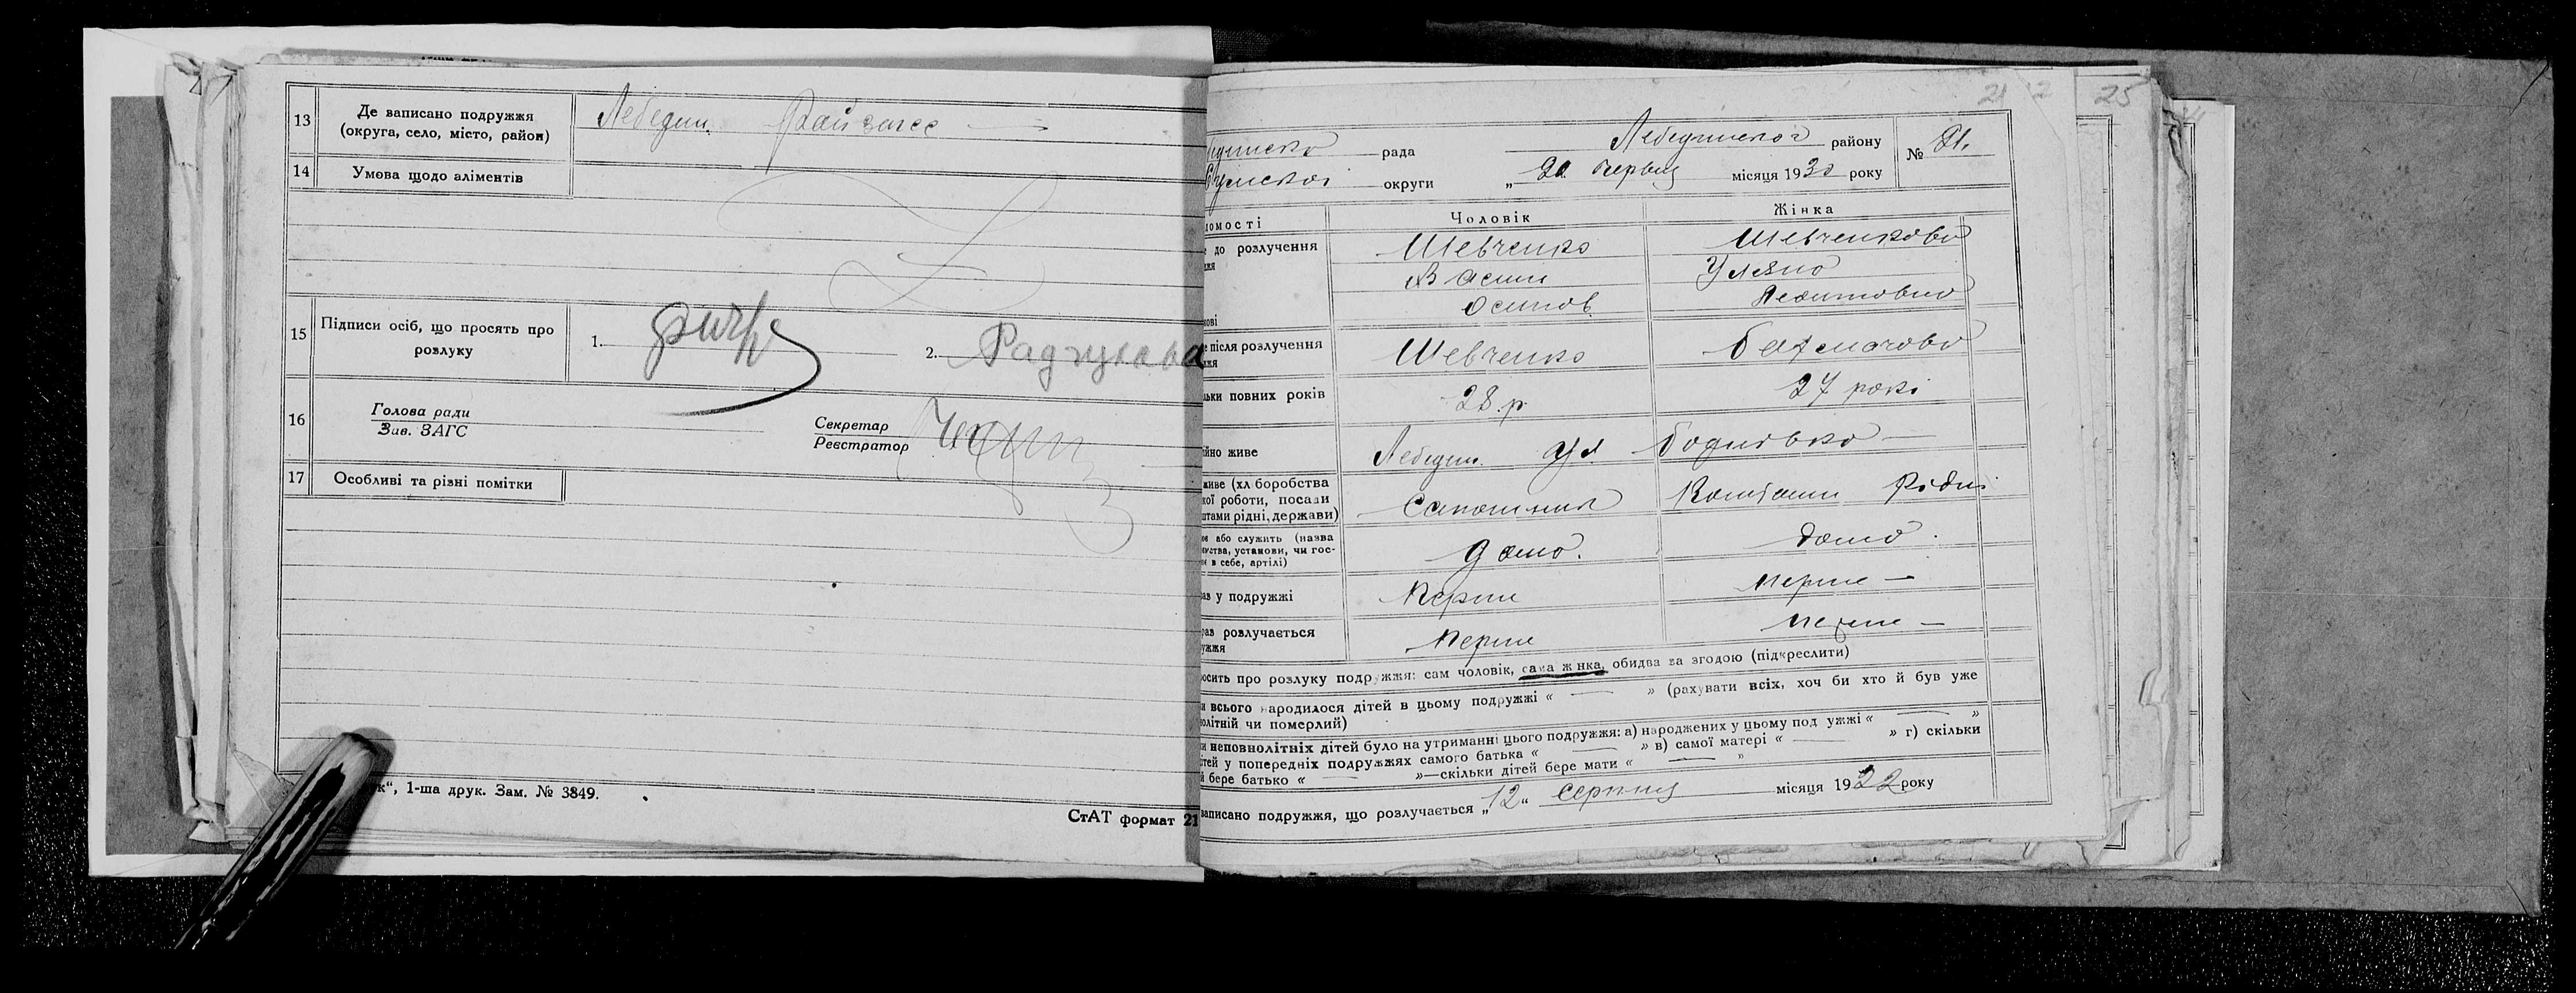 13 Де записано подружжя (округа, село, місто, район) Лебедин. Райзагсе
14 Умова щодо аліментів
15 Підписи осіб, що просять про розлуку 1. 2. Радчукова
16 Голова ради
Зав. ЗАГС
Секретар
Реєстратор
17 Особливі та різні помітки
к", 1-ша друк. Зам. № 3849.
СтАТ формат 21
21 2 25
рада Лебединської району № 21.
Сумської округи „20 Червня місяця 1930 року
домості Чоловік Жінка
до розлучення Шевченко Шевченкова
Васил Уляна
Осипов.
після розлучення Шевченко Бахмачова
льки повних років 28.р. 27 рокі
йно живе Лебедин. Ул Боднівка
живе (хліборобства
кої роботи, посади
штами рідні, держави) Сапожник Коштами Рідні
або служить (назва
мства, установи, чи гос-
в себе, артілі) дома. дома.
ав у подружжі Перше перше
раз розлучається
ужжя перше перше
осить про розлуку подружжя: сам чоловік, сама жінка, обидва за згодою (підкреслити)
и всього народилося дітей в цьому подружжі « — » (рахувати всіх, хоч би хто й був уже
нолітній чи померлий)
и неповнолітніх дітей було на утриманні цього подружжя: а) народжених у цьому подружжі « — »
тей у попередніх подружжях самого батька « — » в) самої матері « — » г) скільки
й бере батько « — »—скільки дітей бере мати « — »
записано подружжя, що розлучається „12" серпня місяця 1922 року